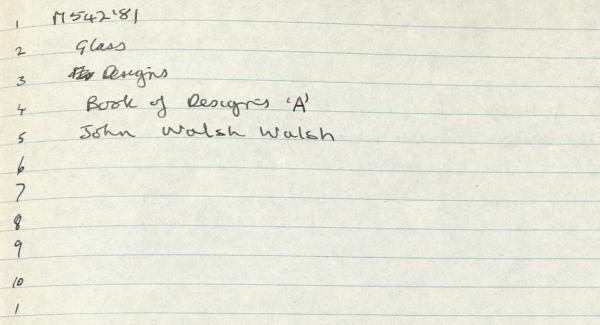 1 M542'81
2 Glass
3 Designs
4 Book of Designs 'A'
5 John Walsh Walsh
6
7
8
9
10
1